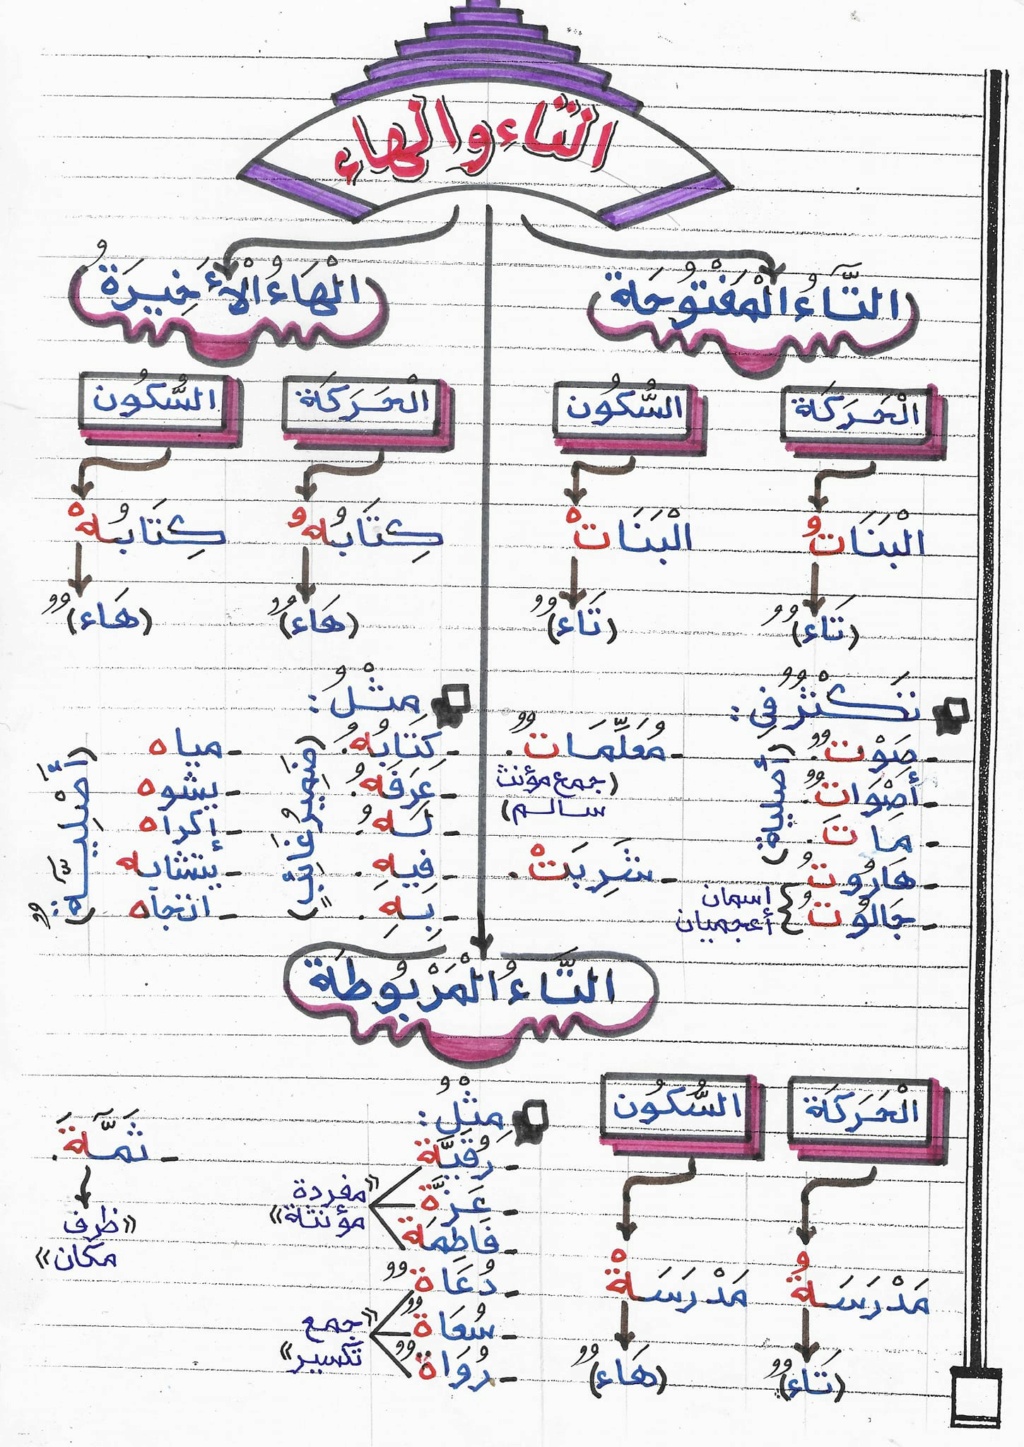 التاء والهاء
التَّاءُ الْمَفْتُوحَة
الْحَرَكَة
السُّكُون
الْبَنَاتُ
الْبَنَاتْ
(تَاءٌ)
(تَاءٌ)
تَكْثُرُ في:
- صَوْتٌ.
- أَصْوَاتٌ.
- مَاتَ.
(أصلية)
- هَارُوت
- جَالُوت
اسمان
أعجميان
- مُعَلِّمَاتٌ.
(جمع مؤنث
سالم)
- شَرِبَتْ.
الْهَاءُ الْأَخِيرَةُ
الْحَرَكَة
السُّكُون
كِتَابُهُ
كِتَابُهْ
(هَاءٌ)
(هَاءٌ)
مثْلُ:
- كتَابُهُ.
- عَرَفَهُ.
- لَهُ.
- فِيهِ.
- بِهِ.
(ضمير غائب)
- مياه
- يشوه
- إكراه
- يتشابه
- اتجاه
(أصْلِيَّة)
التَّاءُ الْمَرْبُوطَة
الْحَرَكَة
السُّكُون
مَدْرَسَةُ
مَدْرَسَةْ
(تَاءٌ)
(هَاءٌ)
مثْلُ:
- رُقَيَّة
- عَزَّة
- فَاطِمَة
«مفردة
مؤنثة»
- دُعَاةٌ
- سُعَاةٌ
- رُوَاةٌ
«جمع
تكسير»
- ثَمَّةَ.
«ظرف
مكان»